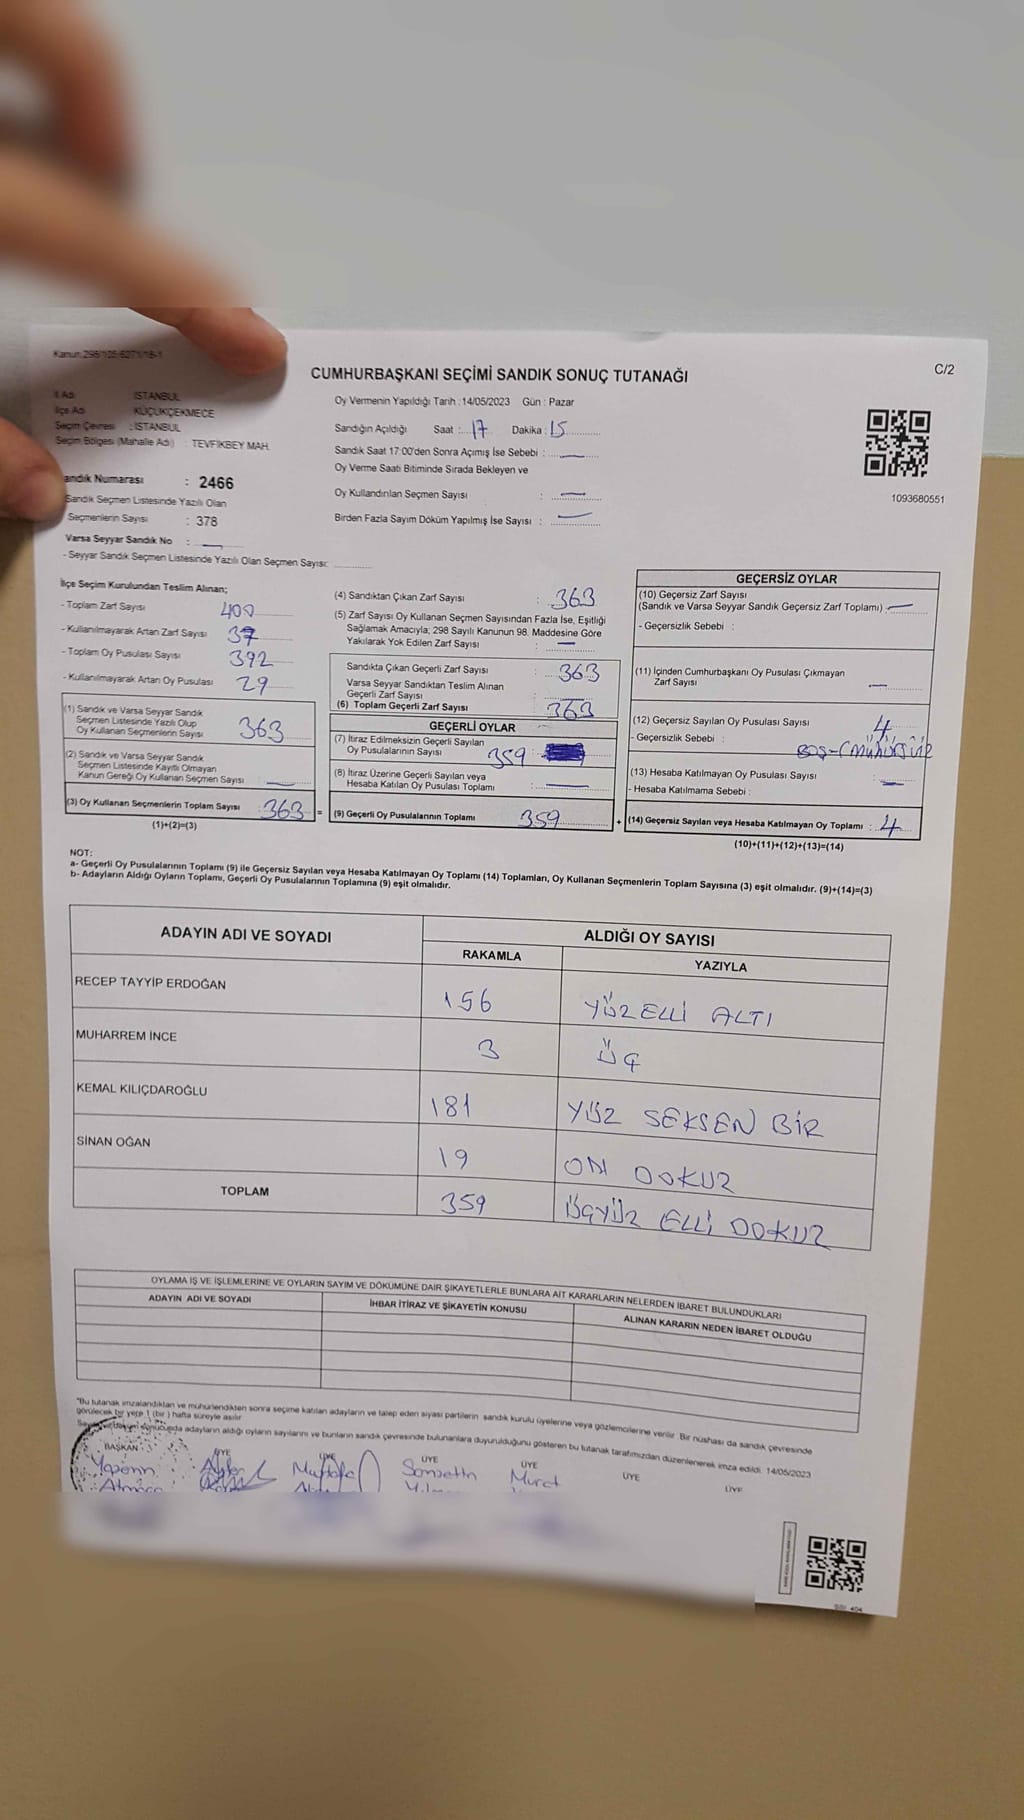 Kanun 298/105-6271/18-1
C/2
CUMHURBAŞKANI SEÇİMİ SANDIK SONUÇ TUTANAĞI
İl Adı : İSTANBUL
İlçe Adı : KÜÇÜKÇEKMECE
Seçim Çevresi : İSTANBUL
Seçim Bölgesi (Mahalle Adı) : TEVFİKBEY MAH.
Sandık Numarası : 2466
Sandık Seçmen Listesinde Yazılı Olan
Seçmenlerin Sayısı : 378
Varsa Seyyar Sandık No :
- Seyyar Sandık Seçmen Listesinde Yazılı Olan Seçmen Sayısı:
Oy Vermenin Yapıldığı Tarih : 14/05/2023 Gün : Pazar
Sandığın Açıldığı Saat : 17 Dakika : 15
Sandık Saat 17:00'den Sonra Açımış İse Sebebi : —
Oy Verme Saati Bitiminde Sırada Bekleyen ve
Oy Kullandırılan Seçmen Sayısı : —
Birden Fazla Sayım Döküm Yapılmış İse Sayısı : —
1093680551
İlçe Seçim Kurulundan Teslim Alınan;
- Toplam Zarf Sayısı 400
- Kullanılmayarak Artan Zarf Sayısı 37
- Toplam Oy Pusulası Sayısı 392
- Kullanılmayarak Artan Oy Pusulası 29
(1) Sandık ve Varsa Seyyar Sandık
Seçmen Listesinde Yazılı Olup
Oy Kullanan Seçmenlerin Sayısı 363
(2) Sandık ve Varsa Seyyar Sandık
Seçmen Listesinde Kayıtlı Olmayan
Kanun Gereği Oy Kullanan Seçmen Sayısı : —
(3) Oy Kullanan Seçmenlerin Toplam Sayısı : 363 =
(1)+(2)=(3)
(4) Sandıktan Çıkan Zarf Sayısı : 363
(5) Zarf Sayısı Oy Kullanan Seçmen Sayısından Fazla İse, Eşitliği
Sağlamak Amacıyla; 298 Sayılı Kanunun 98. Maddesine Göre
Yakılarak Yok Edilen Zarf Sayısı : —
Sandıkta Çıkan Geçerli Zarf Sayısı : 363
Varsa Seyyar Sandıktan Teslim Alınan
Geçerli Zarf Sayısı :
(6) Toplam Geçerli Zarf Sayısı 363
GEÇERLİ OYLAR
(7) İtiraz Edilmeksizin Geçerli Sayılan
Oy Pusulalarının Sayısı 359
(8) İtiraz Üzerine Geçerli Sayılan veya
Hesaba Katılan Oy Pusulası Toplamı : —
(9) Geçerli Oy Pusulalarının Toplamı 359 +
GEÇERSİZ OYLAR
(10) Geçersiz Zarf Sayısı
(Sandık ve Varsa Seyyar Sandık Geçersiz Zarf Toplamı) —
- Geçersizlik Sebebi :
(11) İçinden Cumhurbaşkanı Oy Pusulası Çıkmayan
Zarf Sayısı : —
(12) Geçersiz Sayılan Oy Pusulası Sayısı : 4
- Geçersizlik Sebebi : BOŞ-(MÜHÜRSÜZ
(13) Hesaba Katılmayan Oy Pusulası Sayısı : —
- Hesaba Katılmama Sebebi :
(14) Geçersiz Sayılan veya Hesaba Katılmayan Oy Toplamı : 4
(10)+(11)+(12)+(13)=(14)
NOT:
a- Geçerli Oy Pusulalarının Toplamı (9) ile Geçersiz Sayılan veya Hesaba Katılmayan Oy Toplamı (14) Toplamları, Oy Kullanan Seçmenlerin Toplam Sayısına (3) eşit olmalıdır. (9)+(14)=(3)
b- Adayların Aldığı Oyların Toplamı, Geçerli Oy Pusulalarının Toplamına (9) eşit olmalıdır.
ADAYIN ADI VE SOYADI
ALDIĞI OY SAYISI
RAKAMLA YAZIYLA
RECEP TAYYİP ERDOĞAN 156 YÜZELLİ ALTI
MUHARREM İNCE 3 ÜÇ
KEMAL KILIÇDAROĞLU 181 YÜZ SEKSEN BİR
SİNAN OĞAN 19 ON DOKUZ
TOPLAM 359 ÜÇYÜZ ELLİ DOKUZ
OYLAMA İŞ VE İŞLEMLERİNE VE OYLARIN SAYIM VE DÖKÜMÜNE DAİR ŞİKAYETLERLE BUNLARA AİT KARARLARIN NELERDEN İBARET BULUNDUKLARI
ADAYIN ADI VE SOYADI İHBAR İTİRAZ VE ŞİKAYETİN KONUSU ALINAN KARARIN NEDEN İBARET OLDUĞU
"Bu tutanak imzalandıktan ve mühürlendikten sonra seçime katılan adayların ve talep eden siyasi partilerin sandık kurulu üyelerine veya gözlemcilerine verilir. Bir nüshası da sandık çevresinde
görülecek bir yere 1 (bir) hafta süreyle asılır.
Sayım ve döküm sonucunda adayların aldığı oyların sayılarını ve bunların sandık çevresinde bulunanlara duyurulduğunu gösteren bu tutanak tarafımızdan düzenlenerek imza edildi. 14/05/2023
BAŞKAN ÜYE ÜYE ÜYE ÜYE ÜYE ÜYE
Mustafa Murat
SSI 404